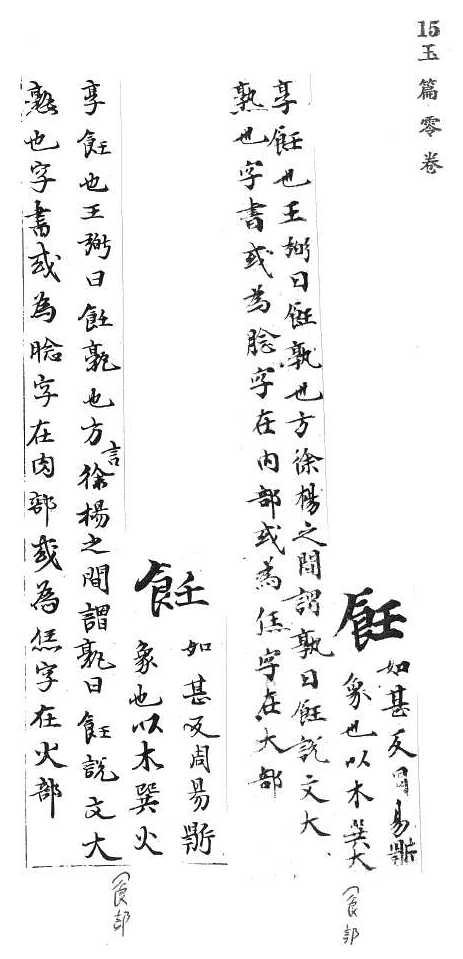 15玉篇零卷
飪
如甚反周易鼎
象也以木巽大
享飪也王弼曰飪孰也方徐楊之間謂孰曰飪說文大
熟也字書或為腍字在肉部或為恁字在大部
食部
飪
如甚反周易鼎
象也以木巽火
享飪也王弼曰飪孰也方言徐楊之間謂孰曰飪說文大
熟也字書或為腍字在肉部或為恁字在火部
食部